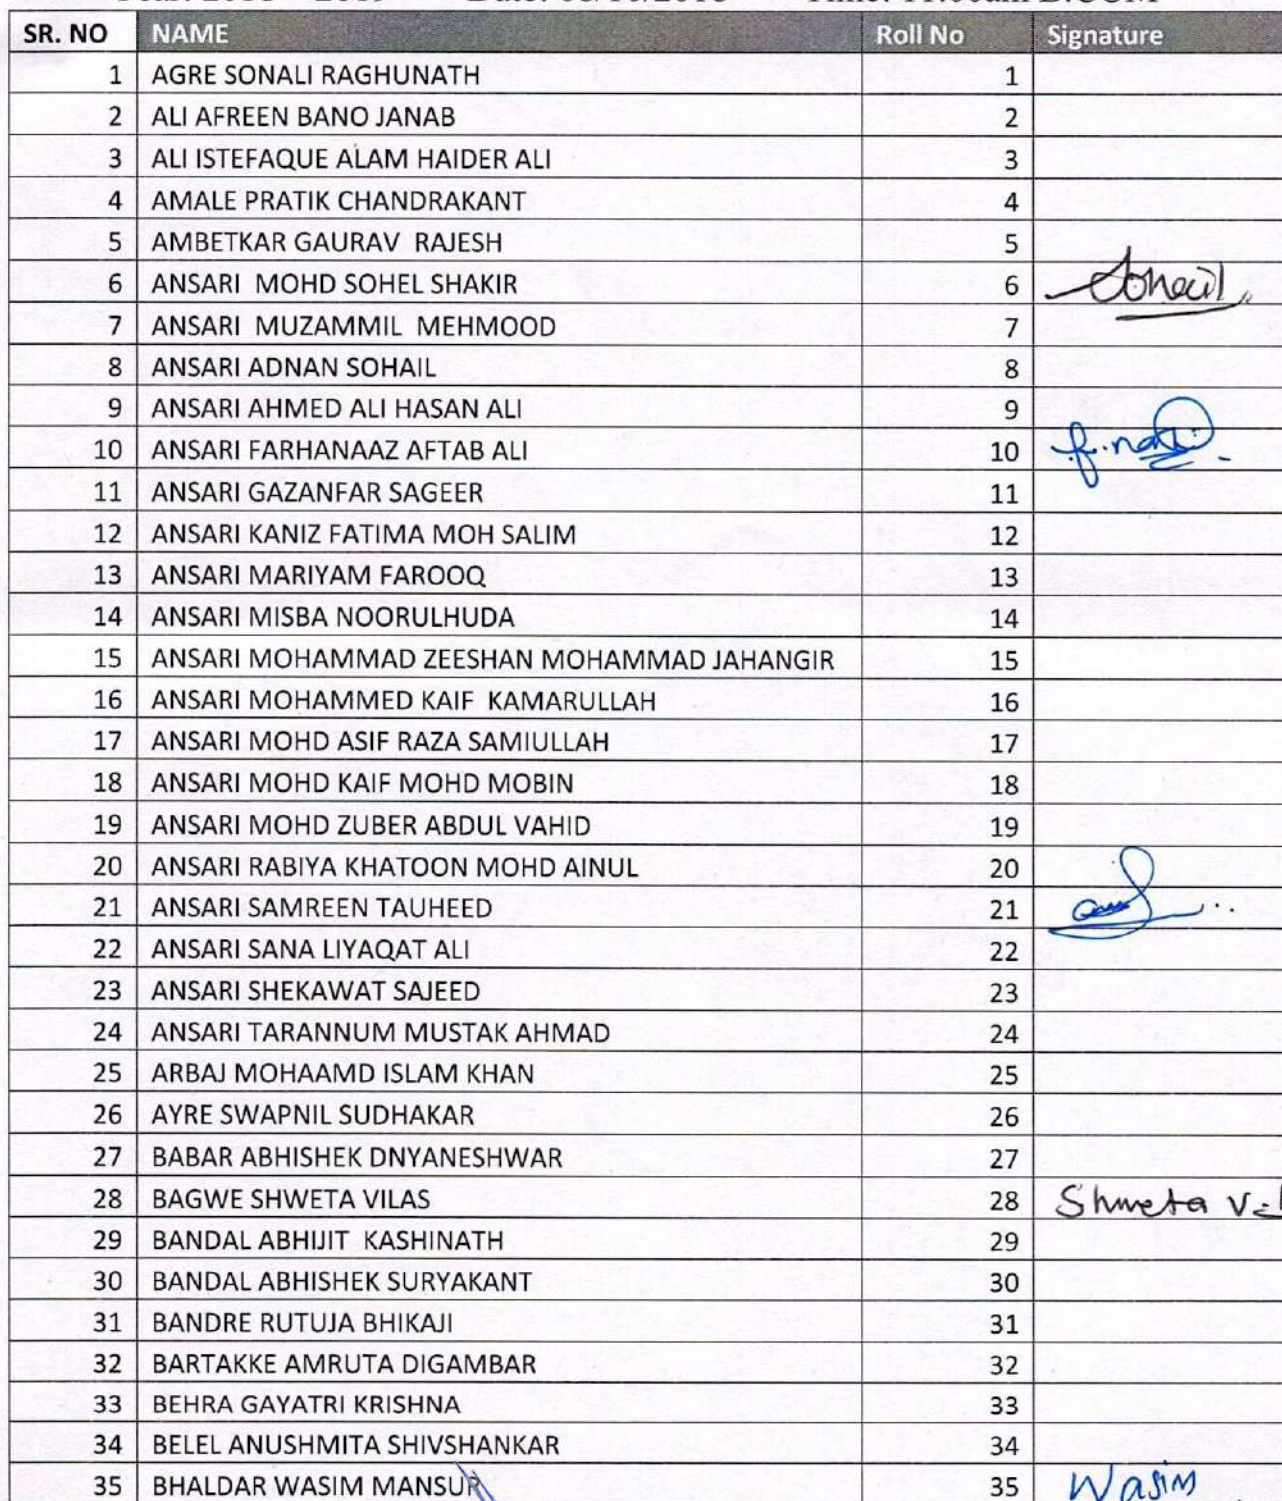 SR. NO NAME Roll No Signature
1 AGRE SONALI RAGHUNATH 1
2 ALI AFREEN BANO JANAB 2
3 ALI ISTEFAQUE ALAM HAIDER ALI 3
4 AMALE PRATIK CHANDRAKANT 4
5 AMBETKAR GAURAV RAJESH 5
6 ANSARI MOHD SOHEL SHAKIR 6 Sohail
7 ANSARI MUZAMMIL MEHMOOD 7
8 ANSARI ADNAN SOHAIL 8
9 ANSARI AHMED ALI HASAN ALI 9
10 ANSARI FARHANAAZ AFTAB ALI 10
11 ANSARI GAZANFAR SAGEER 11
12 ANSARI KANIZ FATIMA MOH SALIM 12
13 ANSARI MARIYAM FAROOQ 13
14 ANSARI MISBA NOORULHUDA 14
15 ANSARI MOHAMMAD ZEESHAN MOHAMMAD JAHANGIR 15
16 ANSARI MOHAMMED KAIF KAMARULLAH 16
17 ANSARI MOHD ASIF RAZA SAMIULLAH 17
18 ANSARI MOHD KAIF MOHD MOBIN 18
19 ANSARI MOHD ZUBER ABDUL VAHID 19
20 ANSARI RABIYA KHATOON MOHD AINUL 20
21 ANSARI SAMREEN TAUHEED 21
22 ANSARI SANA LIYAQAT ALI 22
23 ANSARI SHEKAWAT SAJEED 23
24 ANSARI TARANNUM MUSTAK AHMAD 24
25 ARBAJ MOHAAMD ISLAM KHAN 25
26 AYRE SWAPNIL SUDHAKAR 26
27 BABAR ABHISHEK DNYANESHWAR 27
28 BAGWE SHWETA VILAS 28 Shweta V.
29 BANDAL ABHIJIT KASHINATH 29
30 BANDAL ABHISHEK SURYAKANT 30
31 BANDRE RUTUJA BHIKAJI 31
32 BARTAKKE AMRUTA DIGAMBAR 32
33 BEHRA GAYATRI KRISHNA 33
34 BELEL ANUSHMITA SHIVSHANKAR 34
35 BHALDAR WASIM MANSUR 35 Wasim